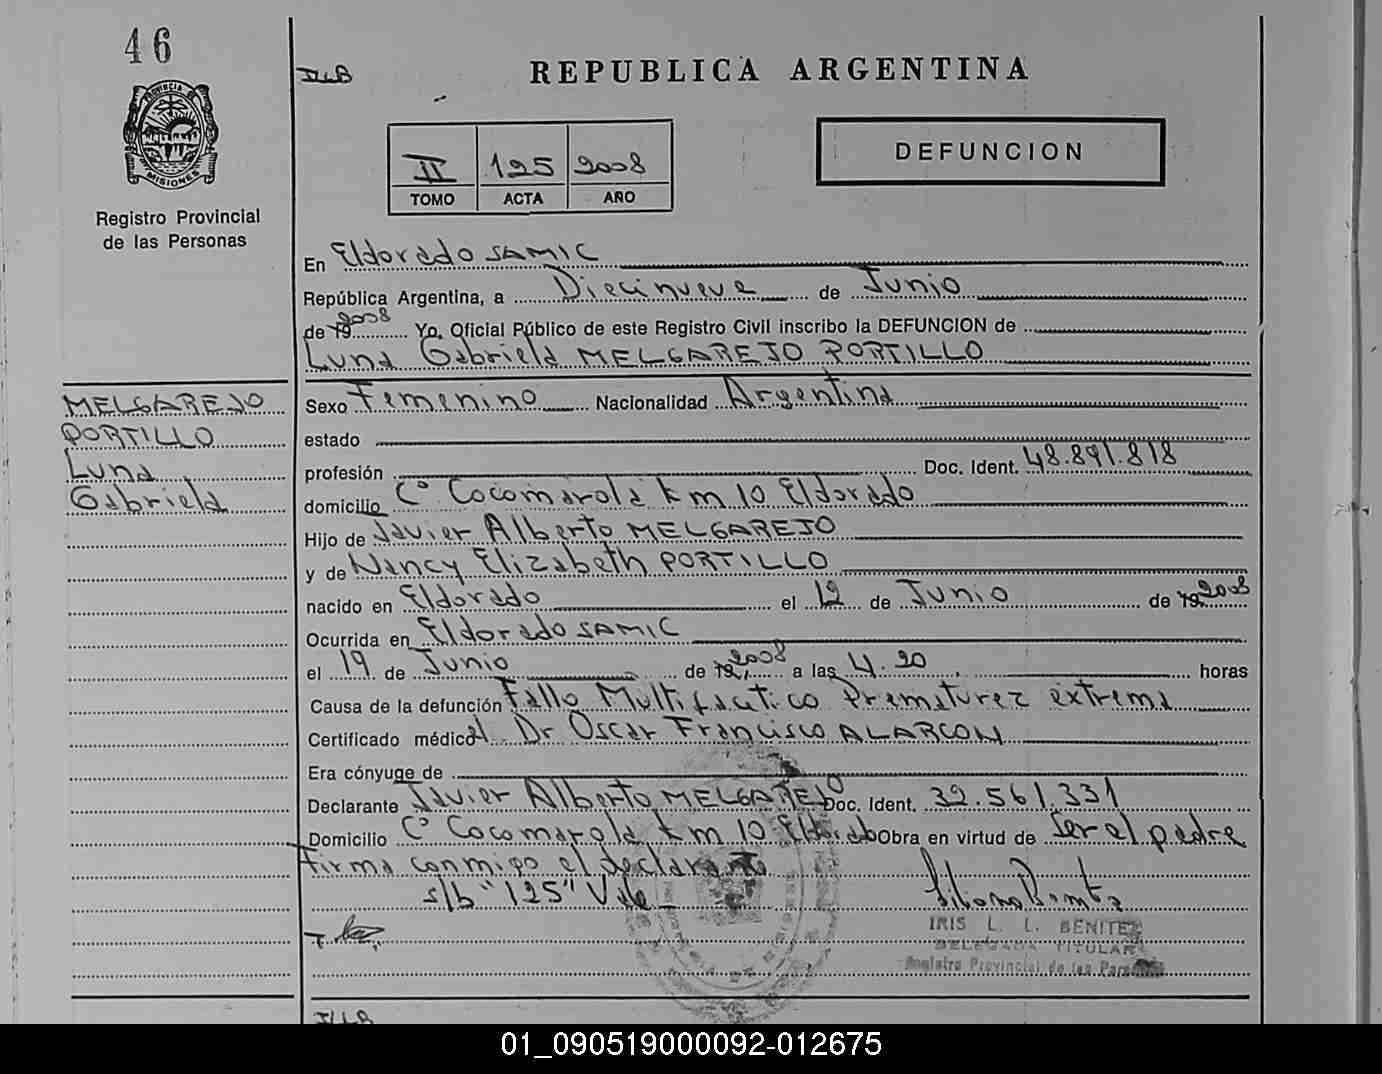 46
ILLB
REPUBLICA ARGENTINA
PROVINCIA DE MISIONES
II 125 2008
TOMO ACTA AÑO
DEFUNCION
Registro Provincial
de las Personas
En Eldorado SAMIC
República Argentina, a Diecinueve de Junio
de 19 2008 Yo, Oficial Público de este Registro Civil inscribo la DEFUNCION de
Luna Gabriela MELGAREJO PORTILLO
MELGAREJO
PORTILLO
Luna
Gabriela
Sexo Femenino Nacionalidad Argentina
estado
profesión Doc. Ident. 48.891.818
domicilio Cº Cocomarola km 10 Eldorado
Hijo de Javier Alberto MELGAREJO
y de Nancy Elizabeth PORTILLO
nacido en Eldorado el 12 de Junio de 19 2008
Ocurrida en Eldorado SAMIC
el 19 de Junio de 19 2008 a las 4.20 horas
Causa de la defunción Fallo Prematurez extrema
Certificado médico Dr Oscar Francisco ALARCON
Era cónyuge de
Declarante Javier Alberto MELGAREJO Doc. Ident. 32.561.331
Domicilio Cº Cocomarola km 10 Eldorado Obra en virtud de ser el padre
Firma conmigo el declarante
s/b "125" Vale
IRIS L. L. BENITEZ
DELEGADA TITULAR
Registro Provincial de las Personas
ILLB
01_090519000092-012675